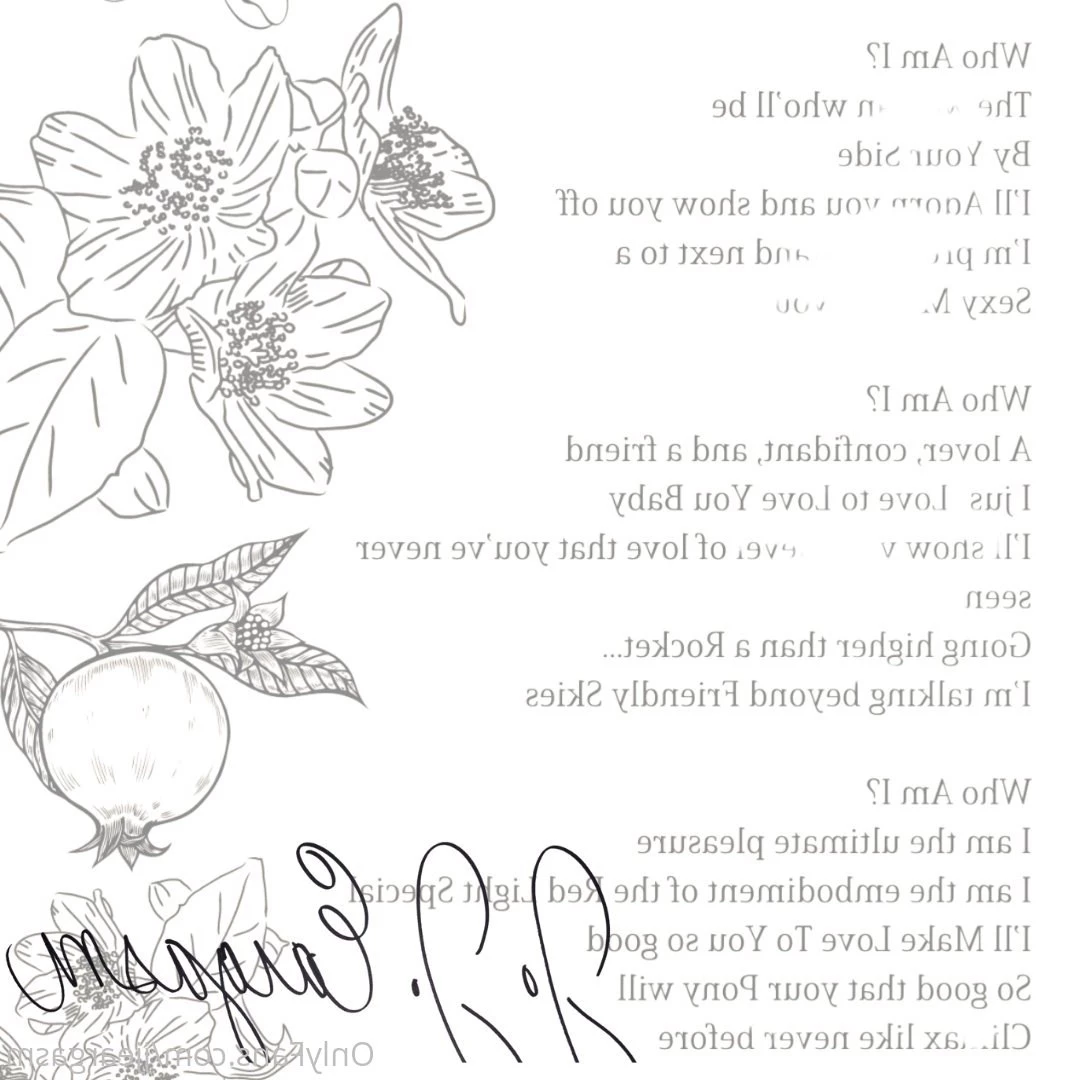 Who Am I?
The who'll be
By Your Side
I'll Adorn you and show you off
I'm and next to a
Sexy you
Who Am I?
A lover, confidant, and a friend
I just Love to Love You Baby
I'll show level of love that you've never
seen
Going higher than a Rocket...
I'm talking beyond Friendly Skies
Who Am I?
I am the ultimate pleasure
I am the embodiment of the Red Light Special
I'll Make Love To You so good
So good that your Pony will
Climax like never before
R.R. Eargasm